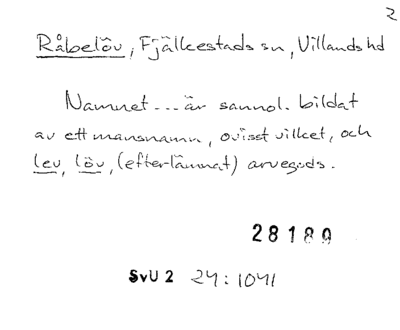 2
Råbelöv, Fjälkestads sn, Villands hd
Namnet... är sannol. bildat
av ett mansnamn, ovisst vilket, och
lev, löv, (efterlämnat) arvegods.
28189
SvU 2 24:1041